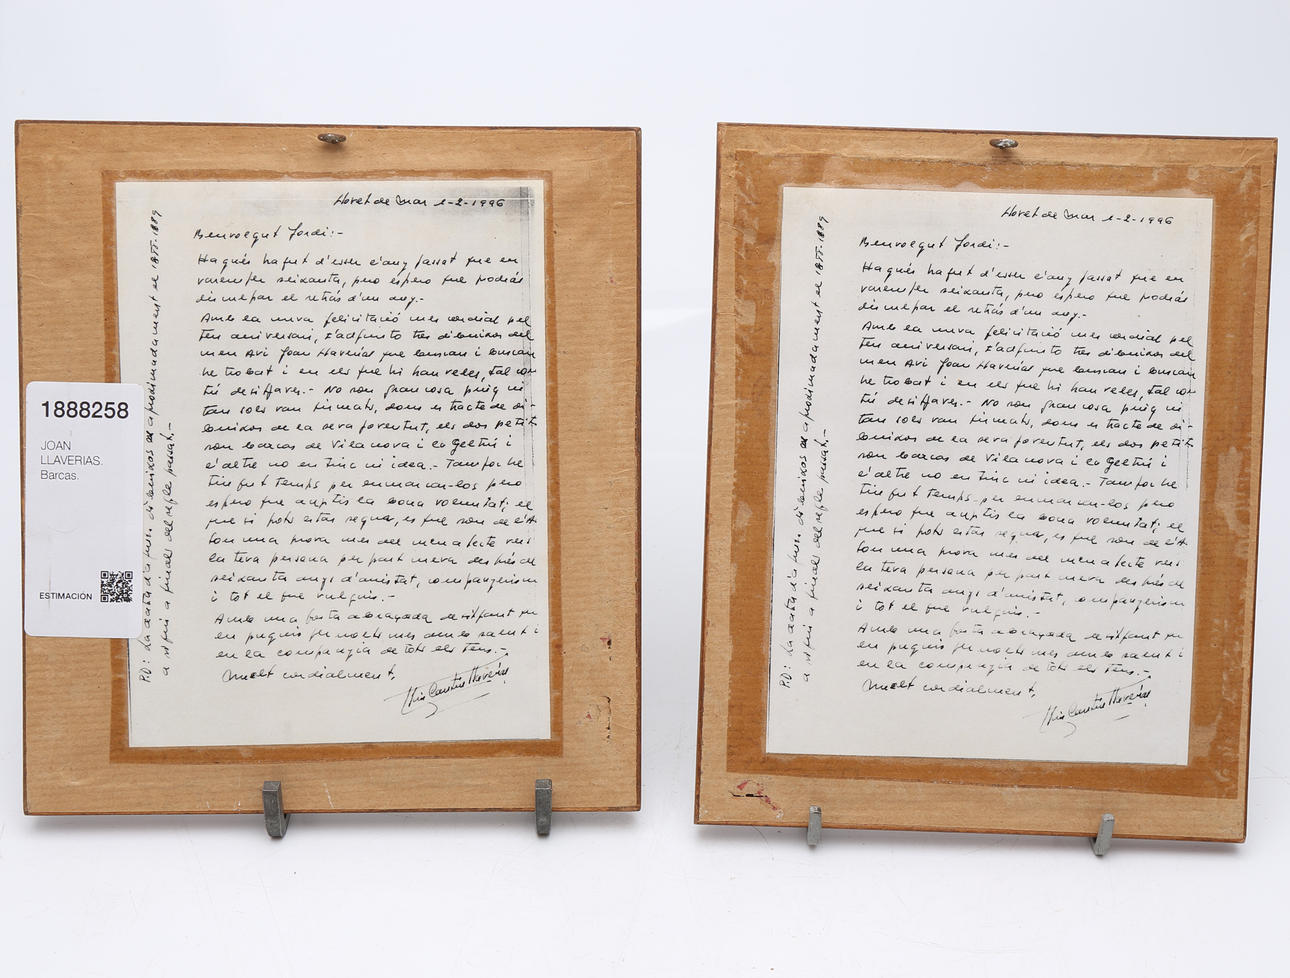 1888258
JOAN
LLAVERIAS.
Barcas.
ESTIMACIÓN
Lloret de Mar 1-2-1996
Benvolgut Jordi:-
Hagués hagut d'esser l'any passat que en
varem fer seixanta, però espero que podràs
disculpar el retràs d'un any.-
Amb la meva felicitació mes cordial pel
teu aniversari, t'adjunto tres dibuixos del
meu Avi Joan Llaverias que buscan i buscan
he trobat i en els que hi han veles, tal com
tú desitjaves.- No son gran cosa puig ni
tan sols van firmats, doncs es tracte de di-
buixos de la seva joventut, els dos petits
son barcas de Vilanova i la Geltrú i
l'altre no en tinc ni idea.- Tampoc he
tingut temps per enmarcar-los pero
espero que aceptis la bona voluntat; el
que si pots estar segur, es que son
una prova mes del meu afecte vers
la teva persona per part meva després de
seixanta anys d'amistat, companyerisme
i tot el que vulguis.-
Amb una forta abraçada desitjant que
en puguis fer molts mes amb salut i
en la companyia de tots els teus.-
Molt cordialment,
P.D: La data dels dibuixos es aproximadament el 1877-1889
o sigui a final del segle passat.-
Lloret de Mar 1-2-1996
Benvolgut Jordi:-
Hagués hagut d'esser l'any passat que en
varem fer seixanta, però espero que podràs
disculpar el retràs d'un any.-
Amb la meva felicitació mes cordial pel
teu aniversari, t'adjunto tres dibuixos del
meu Avi Joan Llaverias que buscan i buscan
he trobat i en els que hi han veles, tal com
tú desitjaves.- No son gran cosa puig ni
tan sols van firmats, doncs es tracte de di-
buixos de la seva joventut, els dos petits
son barcas de Vilanova i la Geltrú i
l'altre no en tinc ni idea.- Tampoc he
tingut temps per enmarcar-los pero
espero que aceptis la bona voluntat; el
que si pots estar segur, es que son
una prova mes del meu afecte vers
la teva persona per part meva després de
seixanta anys d'amistat, companyerisme
i tot el que vulguis.-
Amb una forta abraçada desitjant que
en puguis fer molts mes amb salut i
en la companyia de tots els teus.-
Molt cordialment,
P.D: La data dels dibuixos es aproximadament el 1877-1889
o sigui a final del segle passat.-